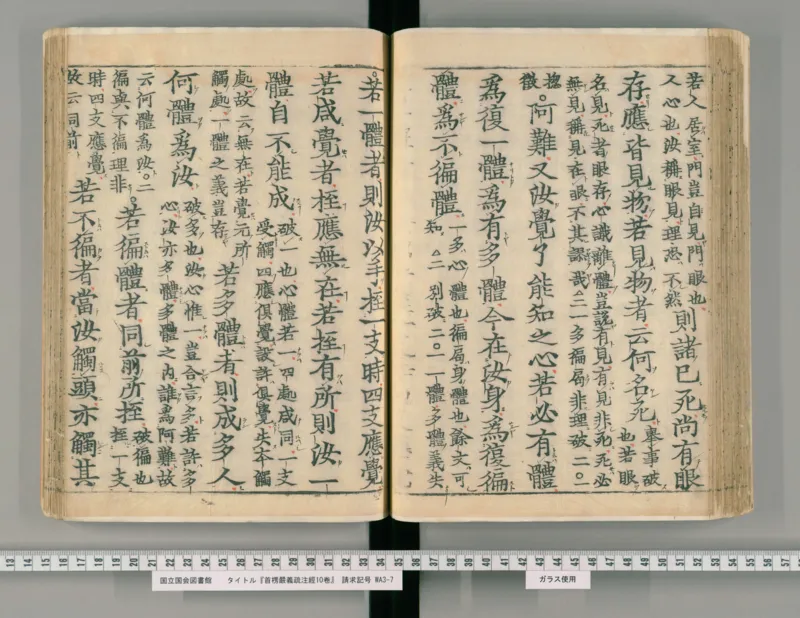 若人居室門豈自見門眼也
又心也汝雖眼見理恐不然
則諸已死尚有眼
存應皆見物若見物者云何名死
舉事破
也若眼
名見死者眼存心識離體豈説有見有見非死死必
無見稱見在眼不其謬哉△三一多徧局非理破二〇
揔
徵
〇阿難又汝覺了能知之心若必有體
爲復一體爲有多體今在汝身爲復徧
體爲不徧體
一多心體也徧局身體也餘文可
知△二別破二〇一一體多體義失
〇若一體者則汝以手挃一支時四支應覺
若咸覺者挃應無在若挃有所則汝一
體自不能成
破一也心體若一四處咸同一支
受觸四應俱覺設許俱覺失本觸
處故云無在若覺元所
觸處一體之義豈存
若多體者則成多人
何體爲汝
破多也汝心惟一豈合言多若許多
心汝亦多體多體之内誰爲阿難故
云何體爲汝△二
徧與不徧理非
〇若徧體者同前所挃
破徧也
挃一支
時四支應覺
故云同前
若不徧者當汝觸頭亦觸其
13 14 15 16 17 18 19 20 21 22 23 24 25 26 27 28 29 30 31 32 33 34 35 36 37 38 39 40 41 42 43 44 45 46 47 48 49 50 51 52 53 54 55 56 57
国立国会図書館 タイトル『首楞嚴義疏注經10巻』 請求記号 WA3-7
ガラス使用